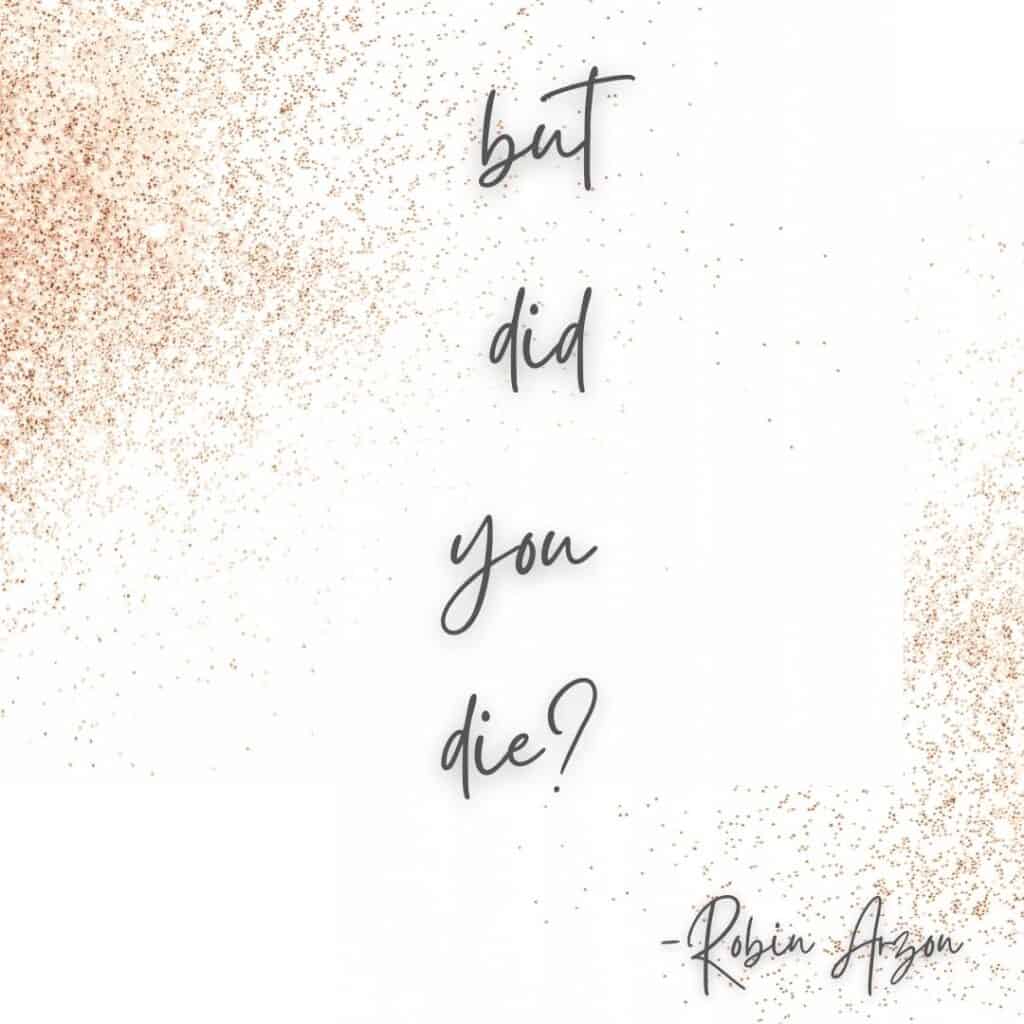 but
did
you
die?
-Robin Arzon